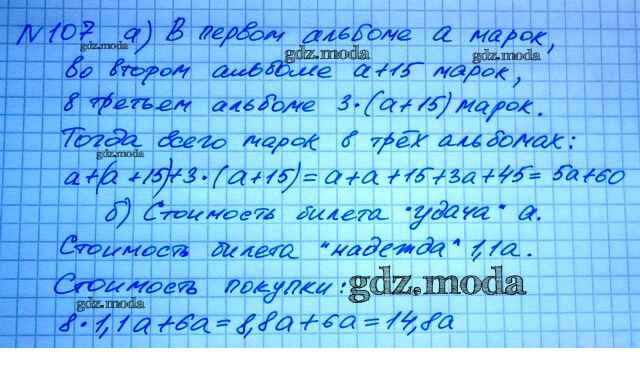 N 107 а) В первом альбоме а марок,
во втором альбоме а+15 марок,
в третьем альбоме 3·(а+15) марок.
Тогда всего марок в трёх альбомах:
а+(а+15)+3·(а+15)=а+а+15+3а+45=5а+60
б) Стоимость билета "удача" а.
Стоимость билета "надежда" 1,1а.
Стоимость покупки:
8·1,1а+6а=8,8а+6а=14,8а
gdz.moda
gdz.moda
gdz.moda
gdz.moda
gdz.moda
gdz.moda